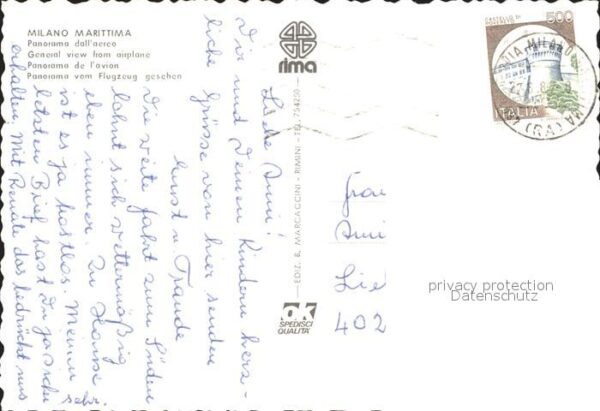 MILANO MARITTIMA
Panorama dall'aereo
General view from airplane
Panorama de l'avion
Panorama vom Flugzeug gesehen
rima
CASTELLO DI
ROVERETO
500
ITALIA
MILANO
(RA)
EDIZ. B. MARCACCINI - RIMINI - TEL. 754250
SPEDISCI
QUALITA'
Liebe Anni!
Dir und Deinen Kindern herz-
liche Grüsse von hier senden
Ernst u Traude
Die weite Fahrt zum Süden
lohnt sich wettermäßig
eben immer. Zu Hause
ist es ja trostlos. Meinen
letzten Brief hast Du ja sicher
erhalten. Mit Renate das bedrückt uns
sehr.
Frau
Anni
Lie
402
privacy protection
Datenschutz